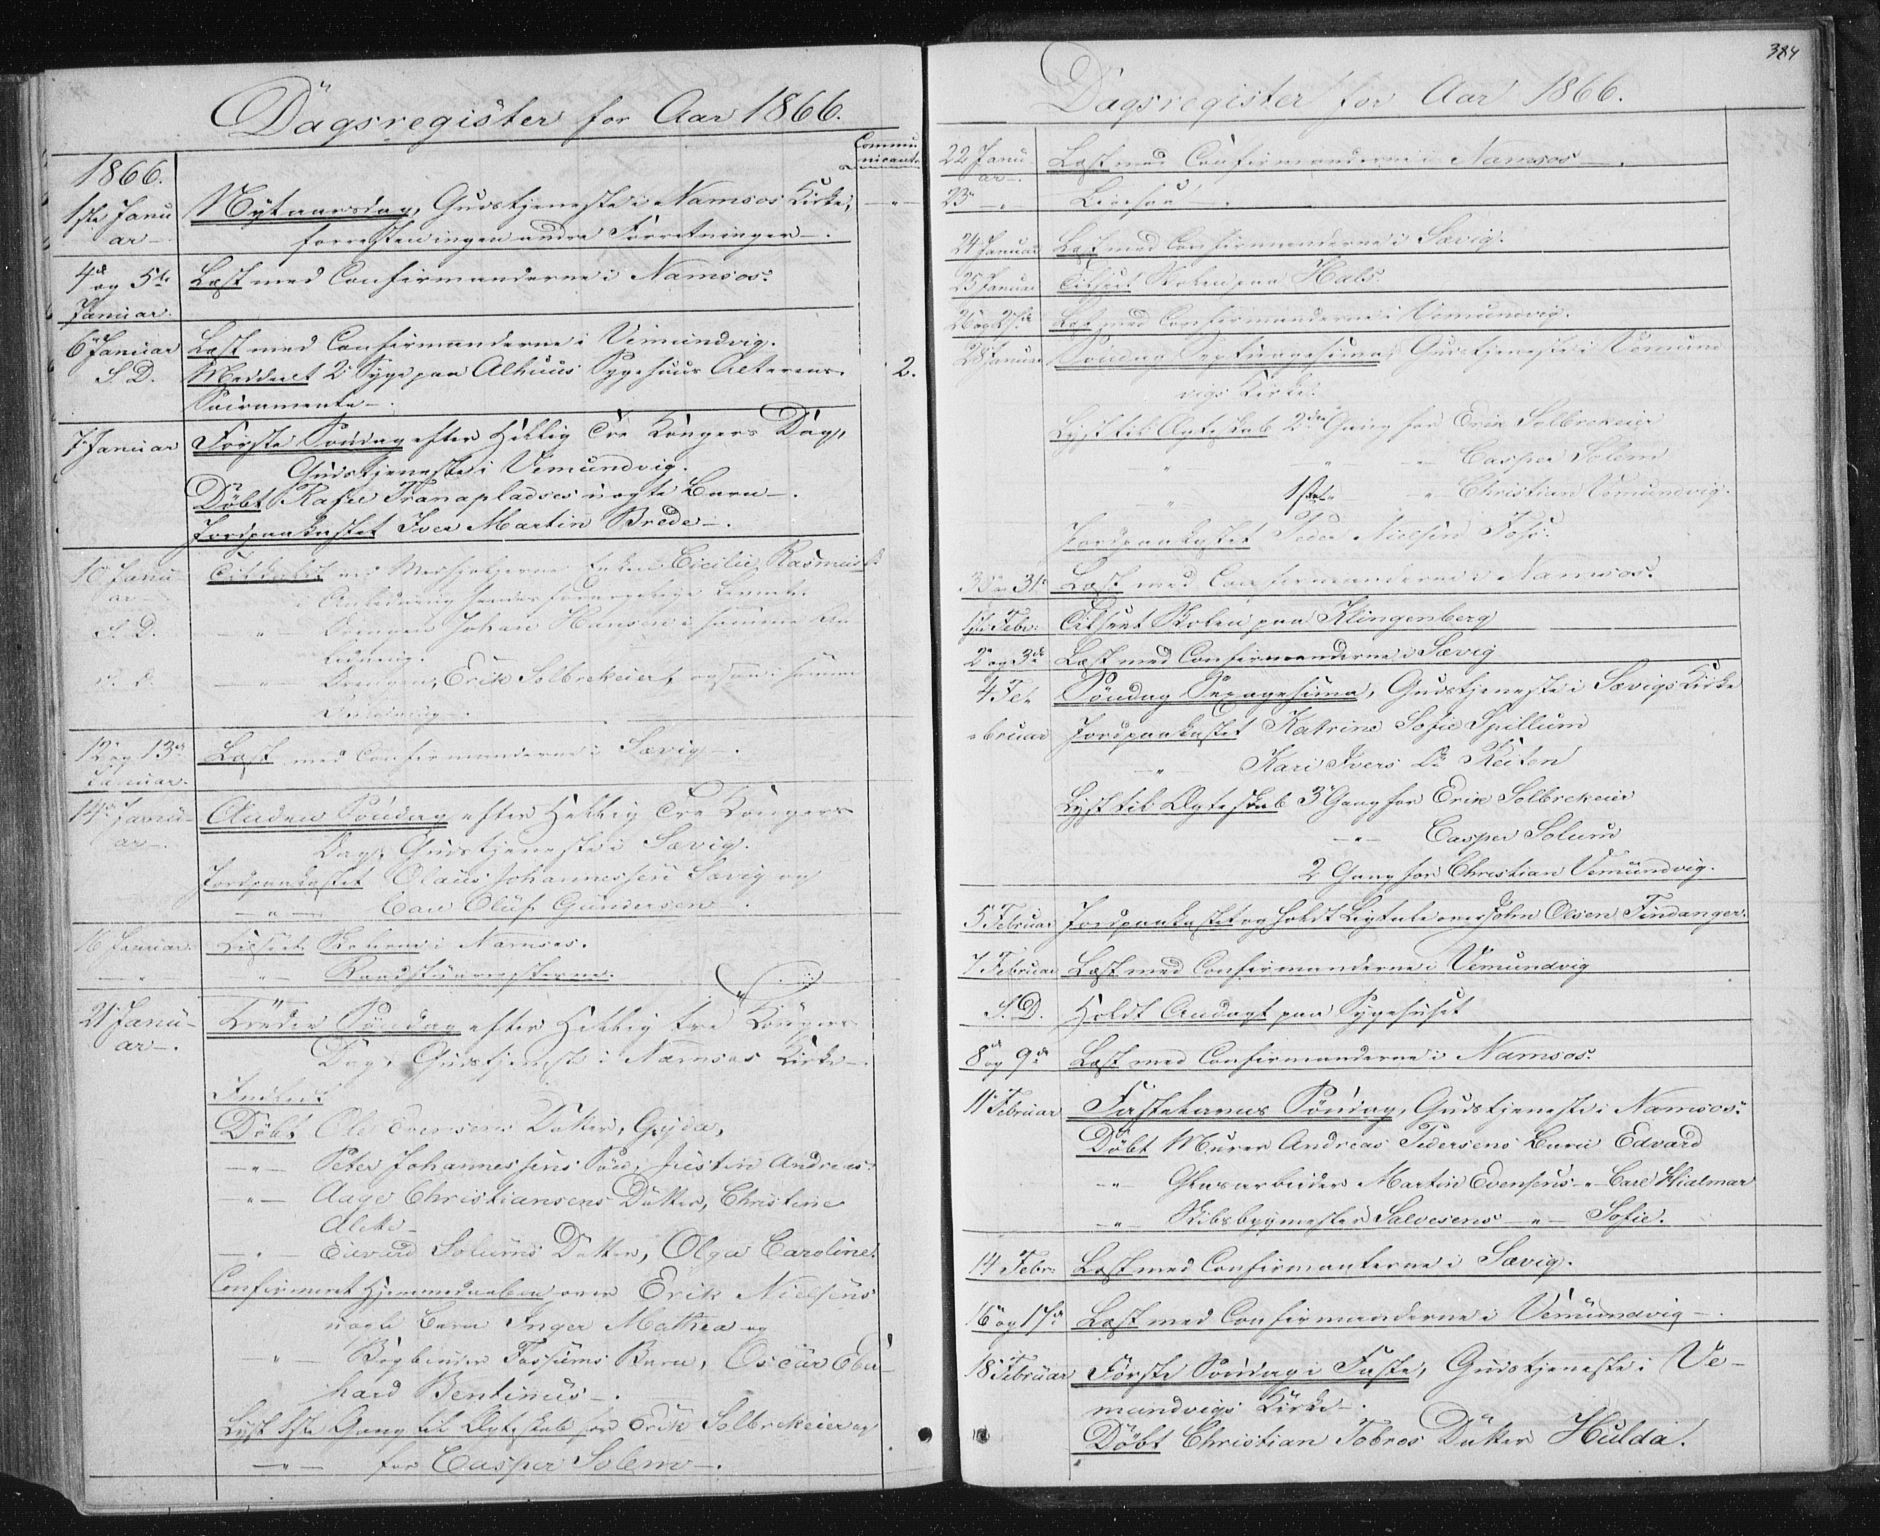 Dagsregister for Aar 1866.
1866.
Communicanter
1ste Januar Nytaarsdag, Gudstjeneste i Namsos Kirke, - " -
forresten ingen andre Forretninger.
4de og 5te Læst med Confirmanderne i Namsos.
Januar.
6 Januar Læst med Confirmanderne i Vemundvig.
S. D. Meddeelt 2 Syge paa Alhuus Sygehuus Alterens 2.
Sacramente.
7 Januar Første Søndag efter Hellig Tre Kongers Dag,
Gudstjeneste i Vemundvig.
Døbt Rafael Tranapladses uægte Barn.
Jordpaakastet Iver Martin Brede.
10 Januar Cicilie Rasmusd
i Anledning
S. D. - " Drengen Johan Hansen i samme An
ledning.
S. D. - " - Drengen, Erik Solbrekeier, ogsaa i samme
Anledning.
12 og 13de Læst med Confirmanderne i Sævig.
Januar.
14 Januar Anden Søndag efter Hellig Tre Kongers
Dag, Gudstjeneste i Sævig.
Jordpaakastet Olaus Johannessen Sævig og
- " - Carl Oluf Gundersen.
16 Januar Skolerne i Namsos.
- " -
21 Januar Tredie Søndag efter Hellig tre Kongers
Dag, Gudstjenest i Namsos Kirke.
Døbt Ole Datter, Gyda,
- " - Peter Johannessens Søn, Justin Andreas.
- " - Aage Christiansens Datter, Christine
- " - Eivind Solums Datter, Olga Caroline.
Confirmeret Hjemmedaaben over Erik Nielsens
uægte Barn Inger Mathea og
- " - Bogbinder Fossums Barn, Oscar Eber
hard Bentinus.
Lyst 1ste Gang til Ægteskab for Erik Solbrekeier og
- " - for Casper Solem.
384
Dagsregister for Aar 1866.
22 Januar Læst med Confirmanderne i Namsos.
23 - "
24 Januar Læst med Confirmanderne i Sævig.
25 Januar Tilseet Skolen paa Hals.
26 og 27de Læst med Confirmanderne i Vemundvig.
28 Januar Søndag Septuagesima, Gudstjeneste i Vemund
vigs Kirke.
Lyst til Ægteskab 2den Gang for Erik Solbrekeier
" - " - Casper Solem
" 1ste " - " Christian Vemundvig.
Jordpaakastet Peder Nielsen
30 og 31te Læst med Confirmanderne i Namsos.
1ste Febr. Tilseet Skolen paa Klingenberg
2 og 3de Læst med Confirmanderne i Sævig
4 Fe- Søndag Sexagesima, Gudstjeneste i Sævigs Kirke
bruar Jordpaakastet Katrine Sofie Spillum
- " - Kari Ivers Dr Reiten
Lyst til Ægteskab 3 Gang for Erik Solbrekeier
- " - Casper Solum
2 Gang for Christian Vemundvig.
5 Februar Jordpaakastet og holdt Ligtale over John Olsen Tindanger.
7 Februar Læst med Confirmanderne i Vemundvig
S. D. Holdt Andagt paa Sygehuset
8de og 9de Læst med Confirmanderne i Namsos.
11 Februar Fastelavns Søndag, Gudstjeneste i Namsos.
Døbt Murer Andreas Pedersens Barn Edvard
- " - Glasarbeider Martin Evensens - " - Carl Hialmar
- " - Skibsbygmester Salvesens - " - Sofie.
14 Febr. Læst med Confirmanterne i Sævig.
16 og 17de Læst med Confirmanderne i Vemundvig.
18 Februar Første Søndag i Faste, Gudstjeneste i Ve-
mundvigs Kirke.
Døbt Christian Datter Hulda.